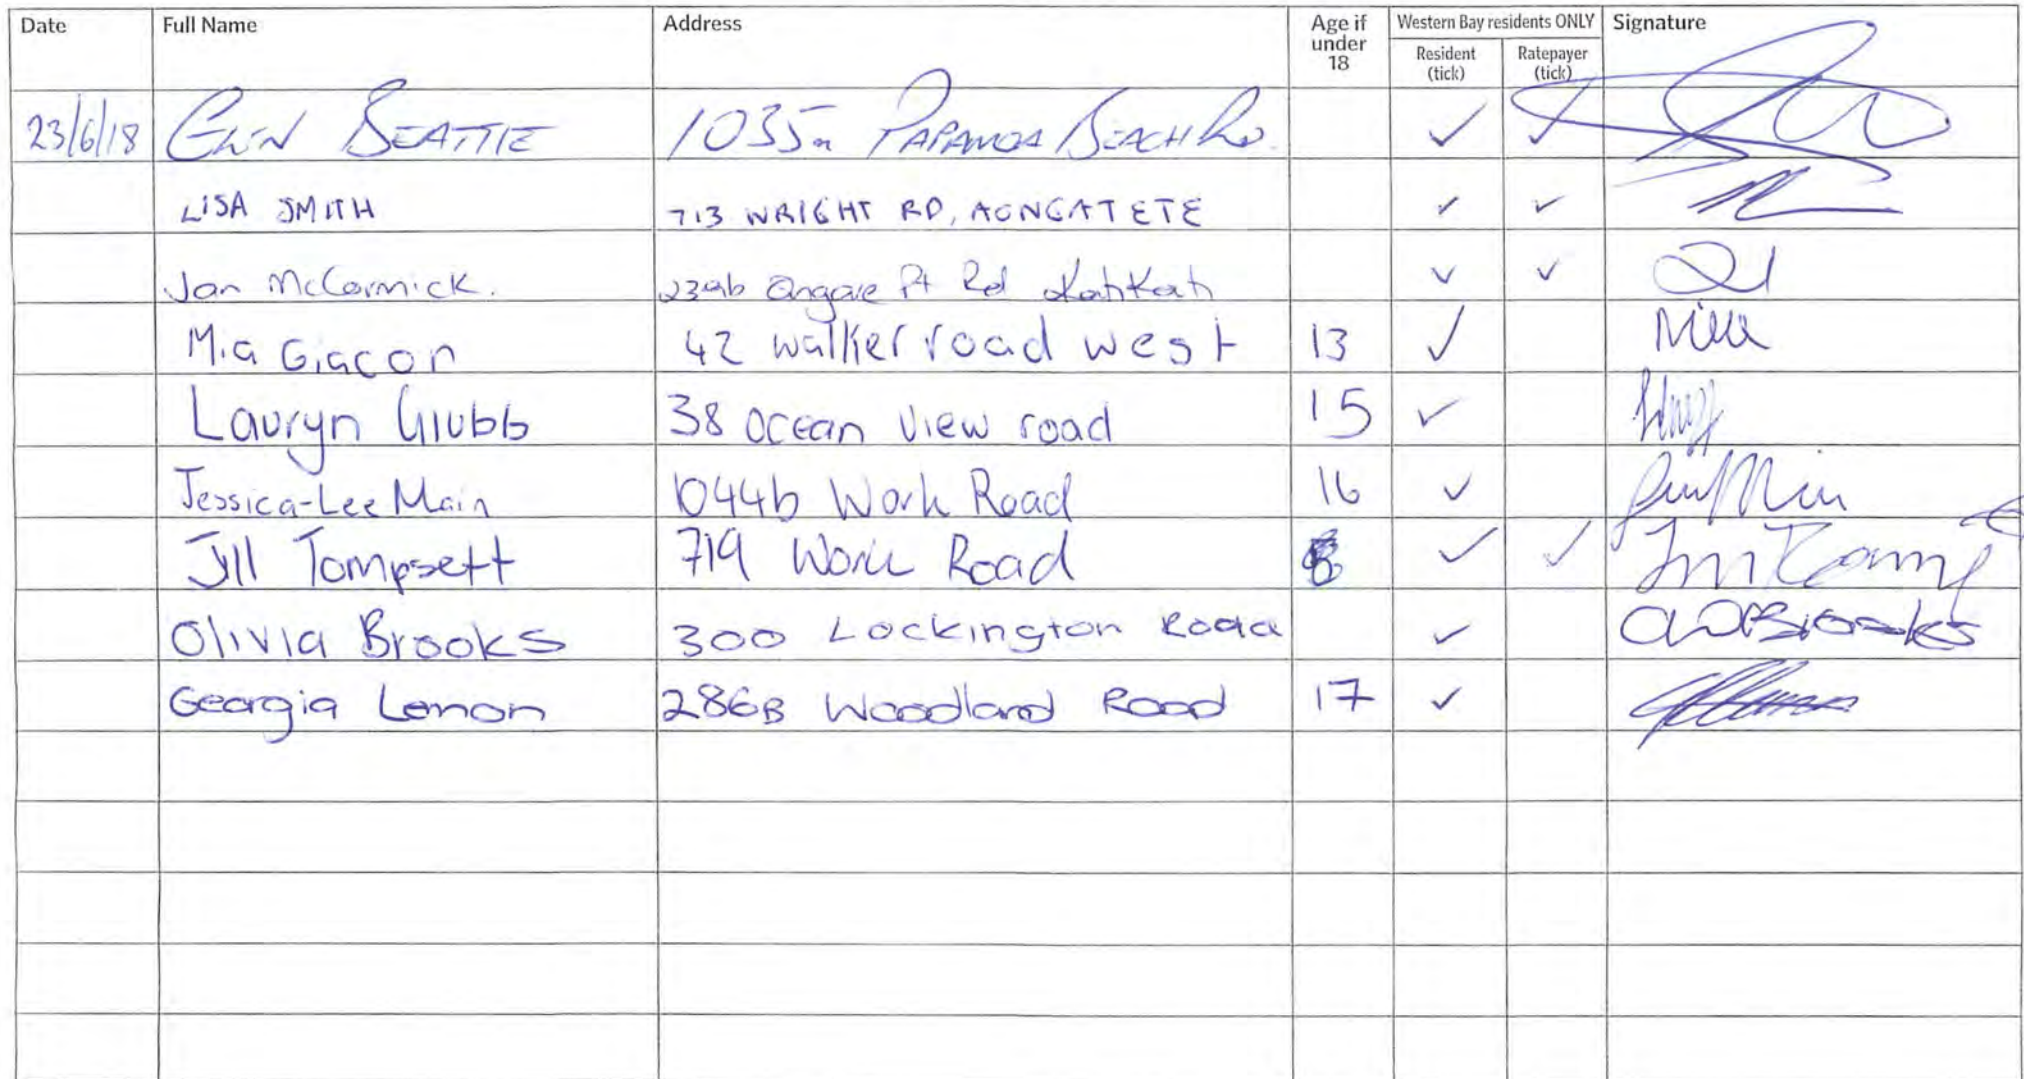 Date Full Name Address Age if under 18 Western Bay residents ONLY Resident (tick) Ratepayer (tick) Signature
23/6/18 GLEN BEATTIE 1035a PAPAMOA BEACH RD. ✓ ✓
LISA SMITH 713 WRIGHT RD, AONGATETE ✓ ✓
Jan McCormick. Ongare Pt Rd KatiKati ✓ ✓
Mia Giacon 42 walker road west 13 ✓
Lauryn Glubb 38 ocean view road 15 ✓
Jessica-Lee Main 1044b Work Road 16 ✓
Jill Tompsett 719 Work Road ✓ ✓
Olivia Brooks 300 Lockington Road ✓ OWBrooks
Georgia Lemon 286B Woodland Road 17 ✓